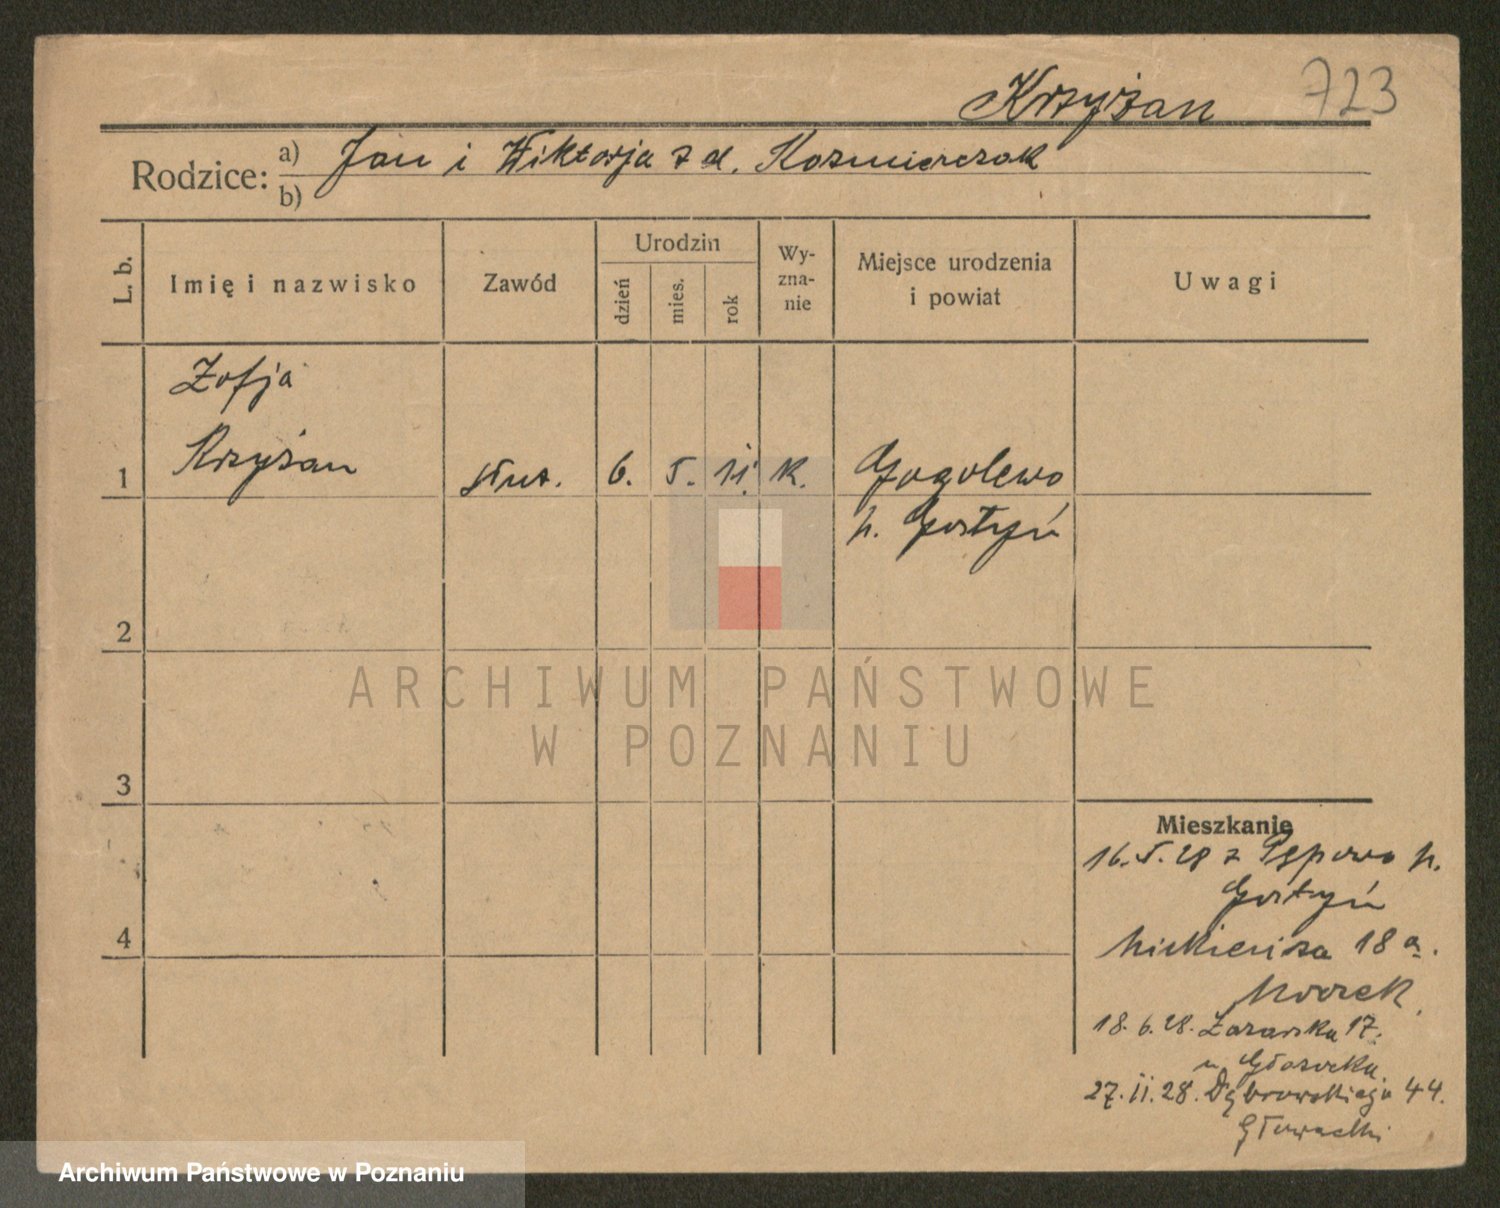 Krzyżan 723
Rodzice: a) Jan i Wiktorja z d. Kazmierczak
b)
L. b.
Imię i nazwisko
Zawód
Urodzin
dzień
mies.
rok
Wy-
zna-
nie
Miejsce urodzenia
i powiat
Uwagi
Zofja
1 Krzyżan służ. 6. 5. 11. k. Gogolewo
p. Gostyń
2
ARCHIWUM PAŃSTWOWE
W POZNANIU
3
4
Mieszkanie
16.5.28 z Pępowo p.
Gostyń
18 a.
18.6.28. 17.
u
27.11.28. Dąbrowskiego 44.
Głowacki
Archiwum Państwowe w Poznaniu